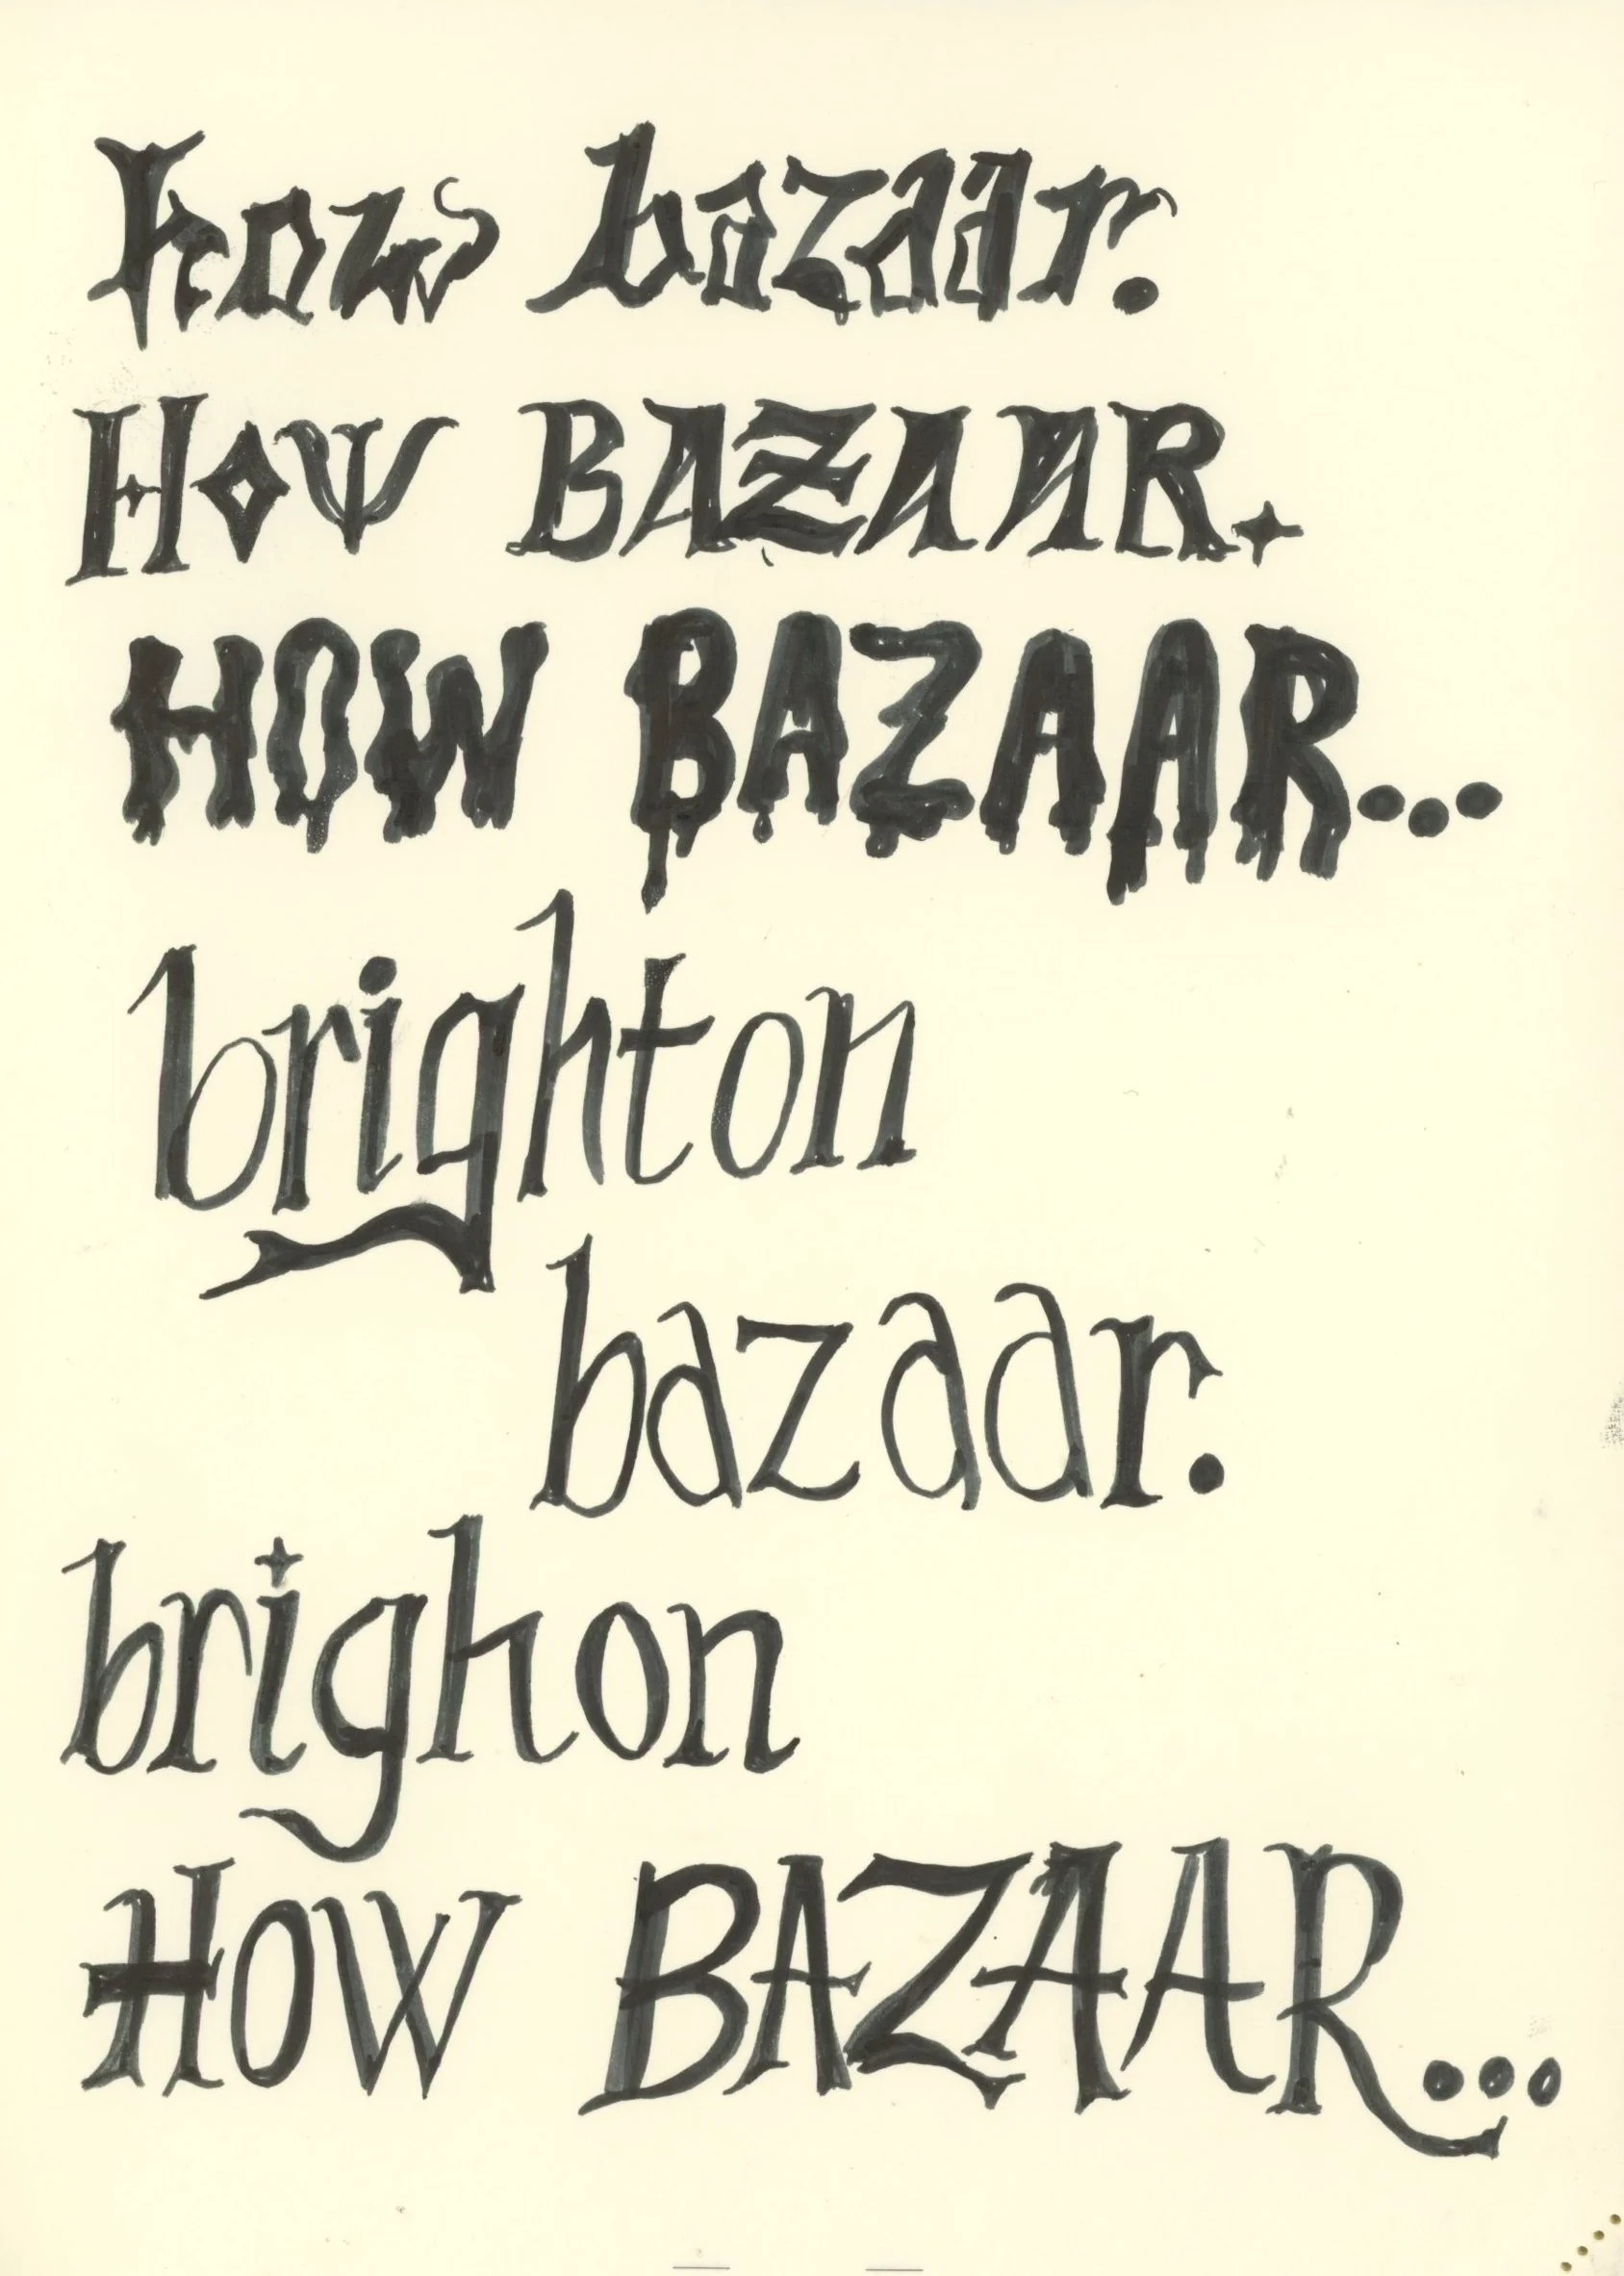 how bazaar.
HOW BAZAAR.
HOW BAZAAR...
brighton
bazaar.
brighon
HOW BAZAAR...